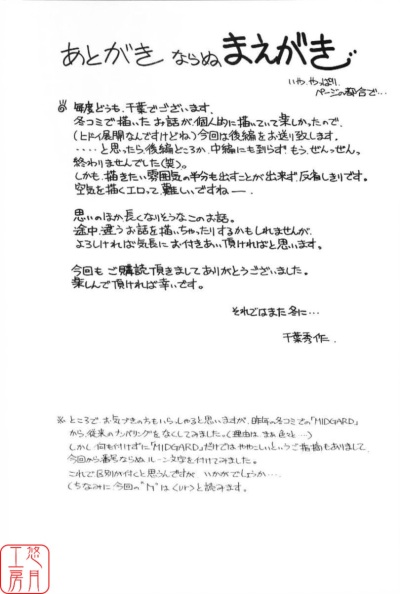 あとがき ならぬ まえがき
いや、やっぱり
ページの都合で…
毎度どうも、千葉でございます。
冬コミで描いたお話が、個人的に描いていて楽しかったので、
(ヒドイ展開なんですけどね)今回は後編をお送り致します。
‥‥と思ったら後編どころか、中編にも到らず もう、ぜんっぜん、
終わりませんでした(笑)。
しかも、描きたい雰囲気の半分も出すことが出来ず、反省しきりです。
空気を描くエロって、難しいですねー
思いのほか、長くなりそうなこのお話。
途中、違うお話を描いちゃったりするかもしれませんが、
よろしければ気長にお付きあい頂ければと思います。
今回も ご購読頂きましてありがとうございました。
楽しんで頂ければ幸いです。
それではまた冬に…
千葉秀作.
※ ところで お気づきの方もいらっしゃると思いますが、昨年の冬コミでの「MIDGARD」
から、従来のナンバリングをなくしてみました。(理由は、まぁ色々と…)
しかし、何も付けずに「MIDGARD」だけでは ややこしいというご指摘もありまして、
今回から番号ならぬ ルーン文字を付けてみました。
これで区別が付くと思うんですが、いかがでしょうか‥‥
悠月工房